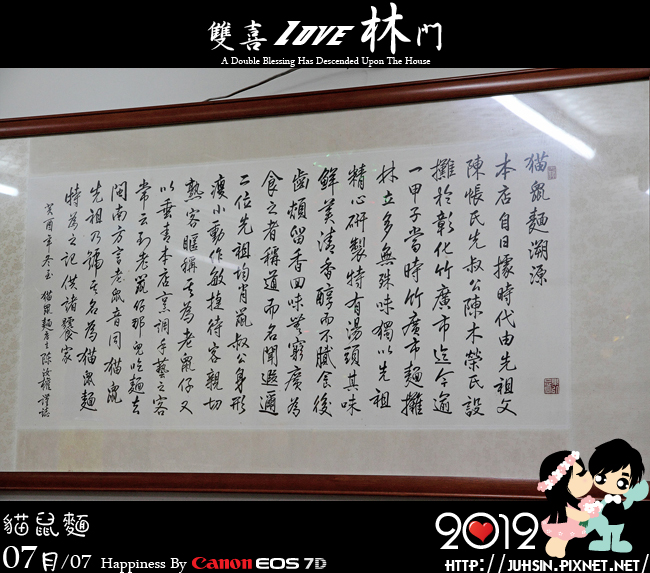 雙喜 LOVE 林門
A Double Blessing Has Descended Upon The House
猫鼠麵溯源
本店自日據時代由先祖父
陳悵氏先叔公陳木榮氏設
攤於彰化竹廣市迄今逾
一甲子當時竹廣市麵攤
林立多無殊味獨以先祖
精心研製特有湯頭其味
鮮美清香醇而不膩食後
齒頰留香回味無窮廣為
食之者稱道而名聞遐邇
二位先祖均肖鼠叔公身形
瘦小動作敏捷待客親切
熟客暱稱其為老鼠仔又
以垂青本店烹調手藝之客
常云到老鼠仔那兒吃麵去
閩南方言老鼠音同猫鼠
先祖乃諱其名為猫鼠麵
特為之記供諸饕家
癸酉年冬至 猫鼠麵店主陳汝權謹誌
貓鼠麵
07月/07 Happiness By Canon EOS 7D
2012
HTTP://JUHSIN.PIXNET.NET/